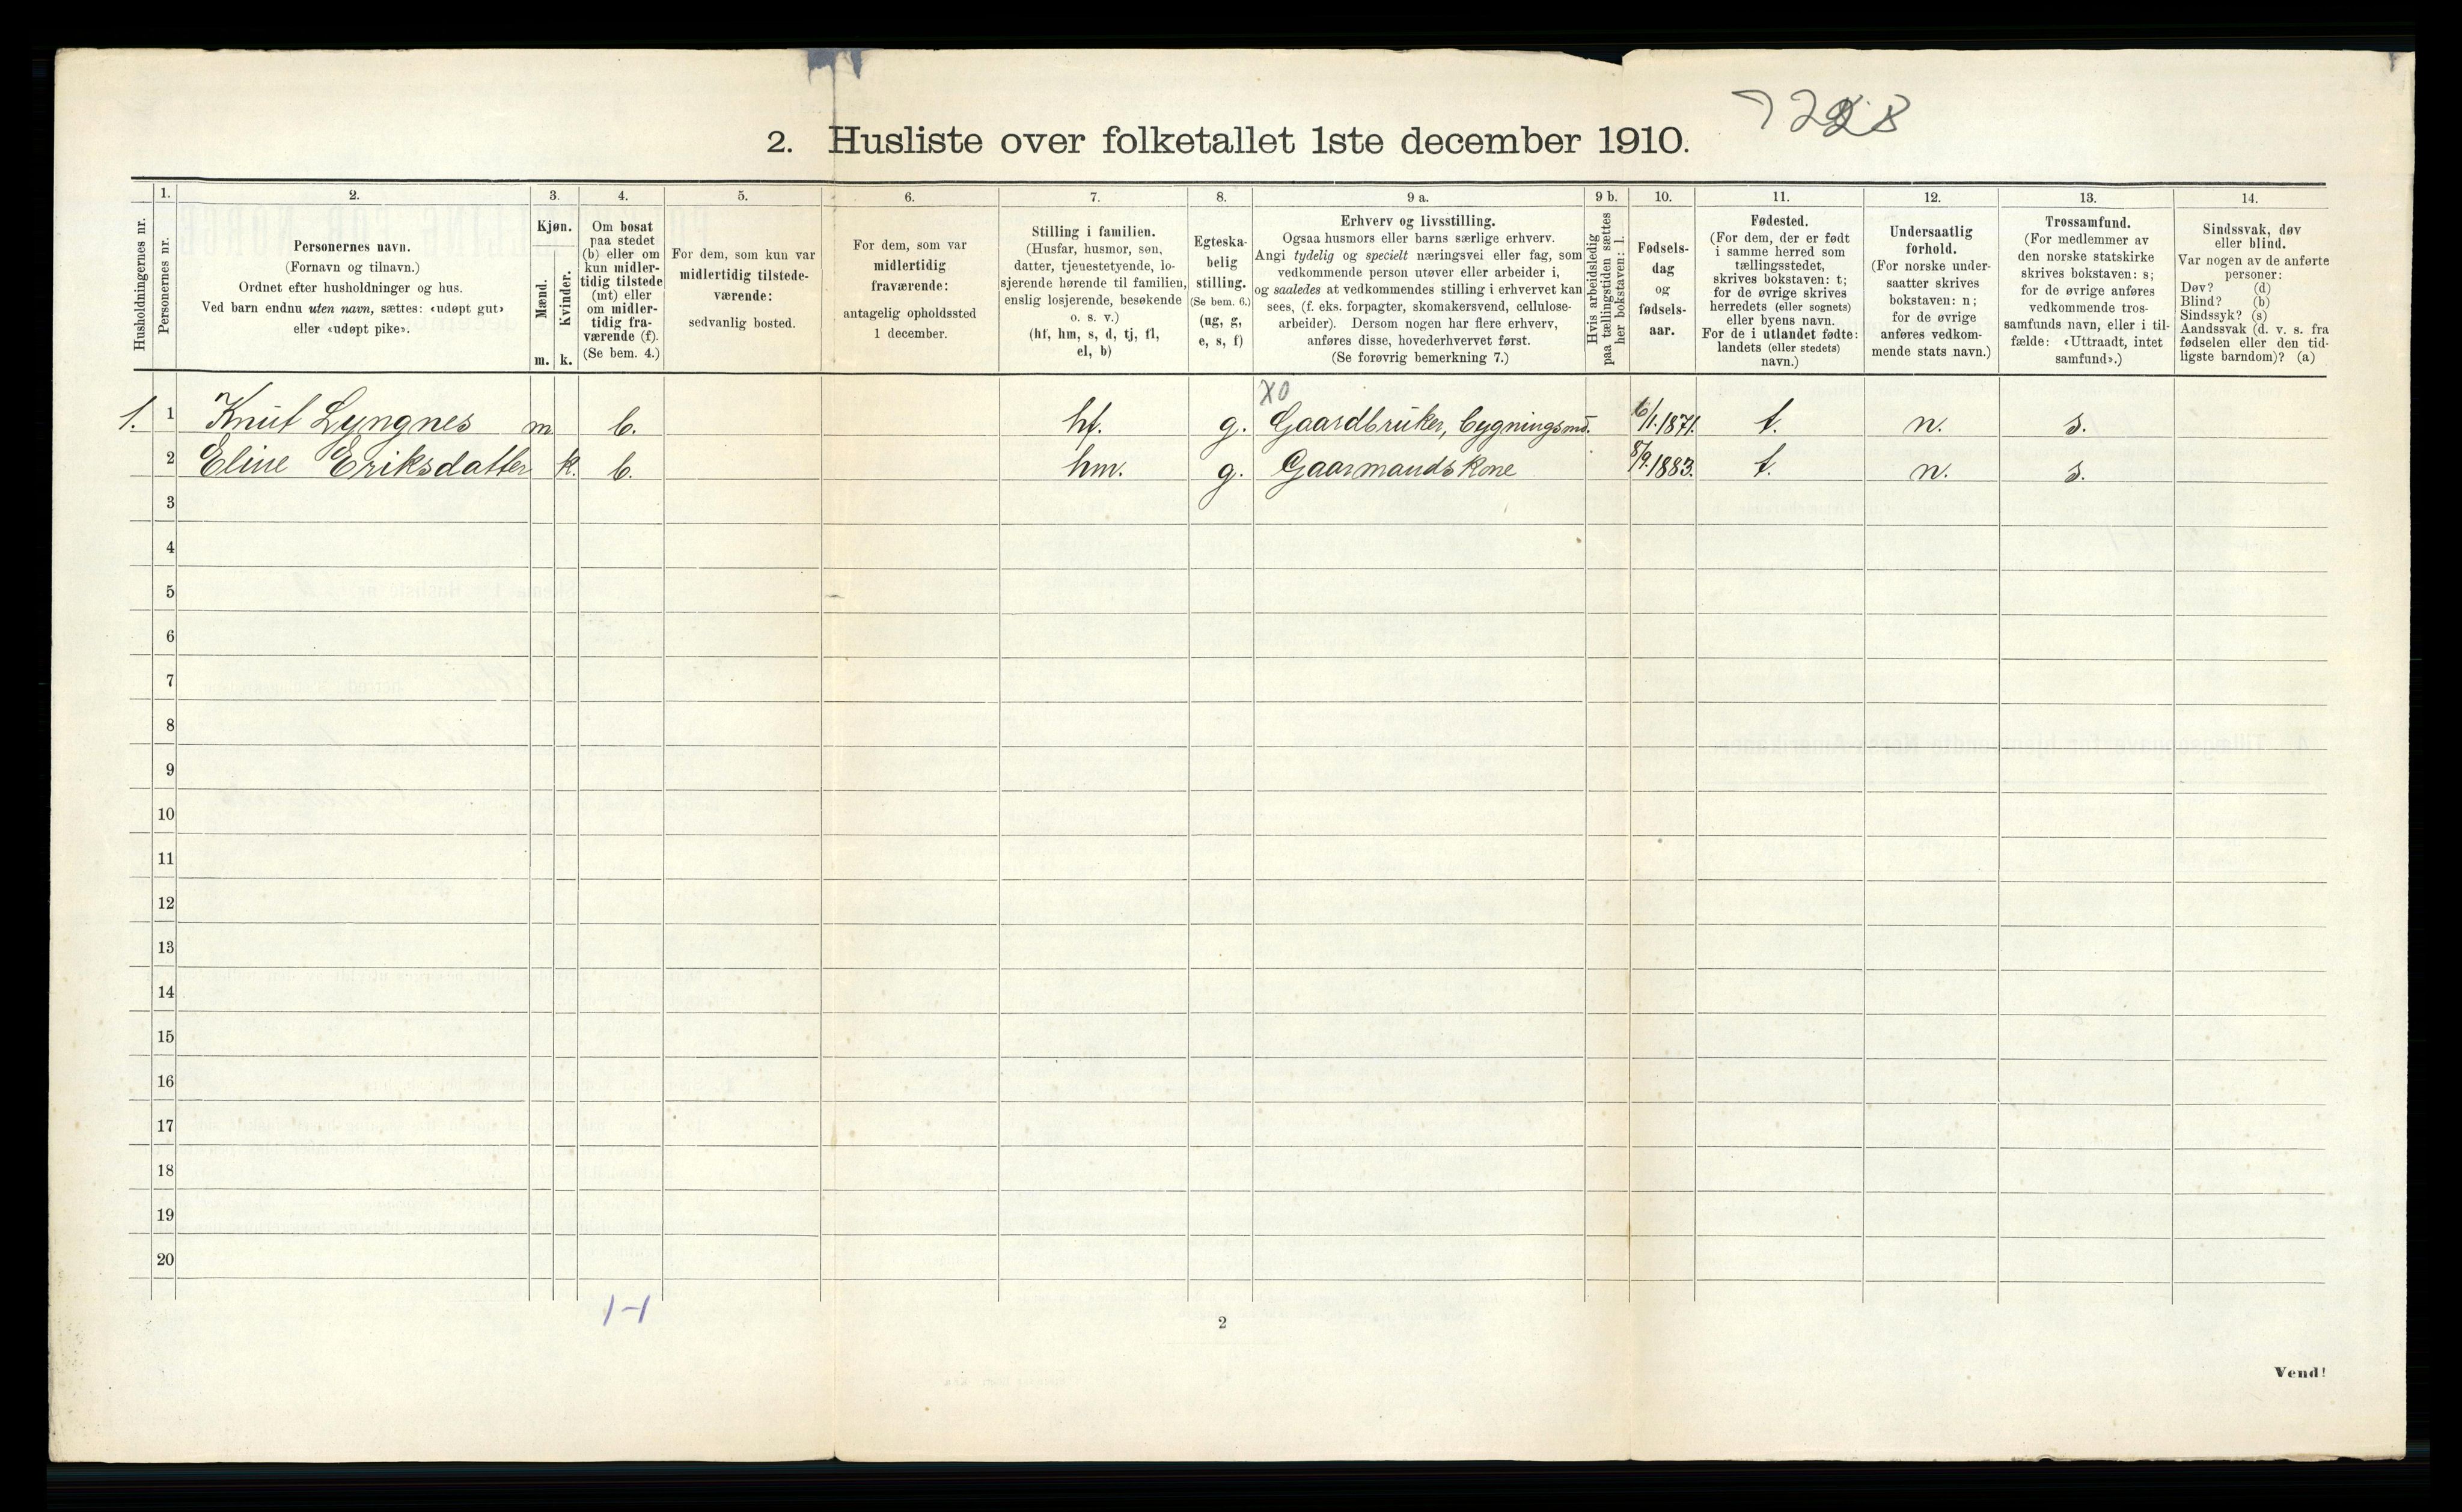 2. Husliste over folketallet 1ste december 1910.
1. 2. 3. 4. 5. 6. 7. 8. 9 a. 9 b. 10. 11. 12. 13. 14.
Husholdningernes nr.
Personernes nr.
Personernes navn.
(Fornavn og tilnavn.)
Ordnet efter husholdninger og hus.
Ved barn endnu uten navn, sættes: «udøpt gut»
eller «udøpt pike».
Kjøn.
Mænd.
Kvinder.
m. k.
Om bosat
paa stedet
(b) eller om
kun midler-
tidig tilstede
(mt) eller
om midler-
tidig fra-
værende (f).
(Se bem. 4.)
For dem, som kun var
midlertidig tilstede-
værende:
sedvanlig bosted.
For dem, som var
midlertidig
fraværende:
antagelig opholdssted
1 december.
Stilling i familien.
(Husfar, husmor, søn,
datter, tjenestetyende, lo-
sjerende hørende til familien,
enslig losjerende, besøkende
o. s. v.)
(hf, hm, s, d, tj, fl,
el, b)
Egteska-
belig
stilling.
(Se bem. 6.)
(ug, g,
e, s, f)
Erhverv og livsstilling.
Ogsaa husmors eller barns særlige erhverv.
Angi tydelig og specielt næringsvei eller fag, som
vedkommende person utøver eller arbeider i,
og saaledes at vedkommendes stilling i erhvervet kan
sees, (f. eks. forpagter, skomakersvend, cellulose-
arbeider). Dersom nogen har flere erhverv,
anføres disse, hovederhvervet først.
(Se forøvrig bemerkning 7.)
Hvis arbeidsledig
paa tællingstiden sættes
her bokstaven: l.
Fødsels-
dag
og
fødsels-
aar.
Fødested.
(For dem, der er født
i samme herred som
tællingsstedet,
skrives bokstaven: t;
for de øvrige skrives
herredets (eller sognets)
eller byens navn.
For de i utlandet fødte:
landets (eller stedets)
navn.)
Undersaatlig
forhold.
(For norske under-
saatter skrives
bokstaven: n;
for de øvrige
anføres vedkom-
mende stats navn.)
Trossamfund.
(For medlemmer av
den norske statskirke
skrives bokstaven: s;
for de øvrige anføres
vedkommende tros-
samfunds navn, eller i til-
fælde: «Uttraadt, intet
samfund».)
Sindssvak, døv
eller blind.
Var nogen av de anførte
personer:
Døv? (d)
Blind? (b)
Sindssyk? (s)
Aandssvak (d. v. s. fra
fødselen eller den tid-
ligste barndom)? (a)
X0
1. 1 Knut Lyngnes m b. hf. g. Gaardbruker, bygningsmd. 6/1.1871. t. n. s.
2 Eline Eriksdatter k. b. hm. g. Gaarmandskone 8/9.1883. t. n. s.
3
4
5
6
7
8
9
10
11
12
13
14
15
16
17
18
19
20
1-1
2
Vend!